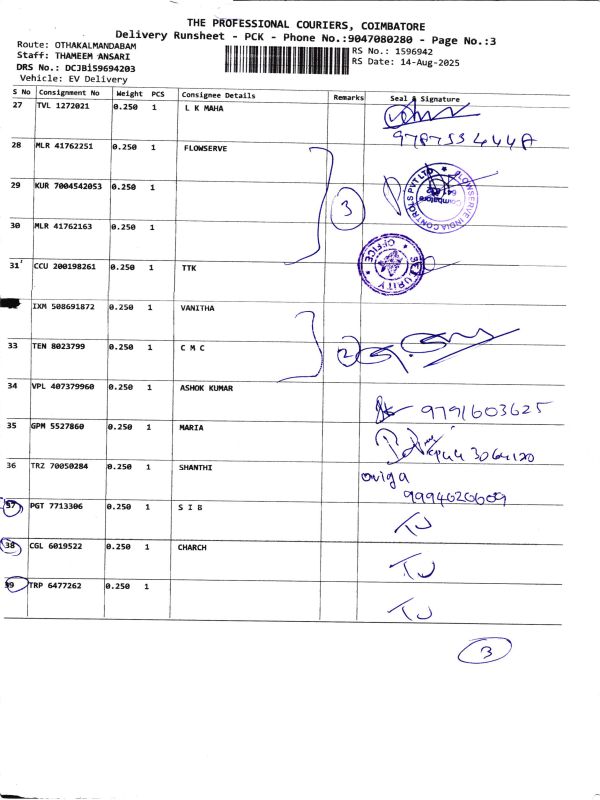 THE PROFESSIONAL COURIERS, COIMBATORE
Delivery Runsheet - PCK - Phone No.:9047080280 - Page No.:3
Route: OTHAKALMANDABAM
Staff: THAMEEM ANSARI
RS No.: 1596942
DRS No.: DCJBi59694203
RS Date: 14-Aug-2025
Vehicle: EV Delivery
S No Consignment No Weight PCS Consignee Details Remarks Seal & Signature
27 TVL 1272021 0.250 1 L K MAHA
28 MLR 41762251 0.250 1 FLOWSERVE
29 KUR 7004542053 0.250 1
FLOWSERVE INDIA CONTROLS PVT LTD
Coimbatore
3
30 MLR 41762163 0.250 1
31 CCU 200198261 0.250 1 TTK
SECURITY OFFICE
IXM 508691872 0.250 1 VANITHA
33 TEN 8023799 0.250 1 C M C
2
34 VPL 407379960 0.250 1 ASHOK KUMAR
9791603625
35 GPM 5527860 0.250 1 MARIA
36 TRZ 70050284 0.250 1 SHANTHI
oviga
9994620609
37 PGT 7713306 0.250 1 S I B
38 CGL 6019522 0.250 1 CHARCH
39 TRP 6477262 0.250 1
3